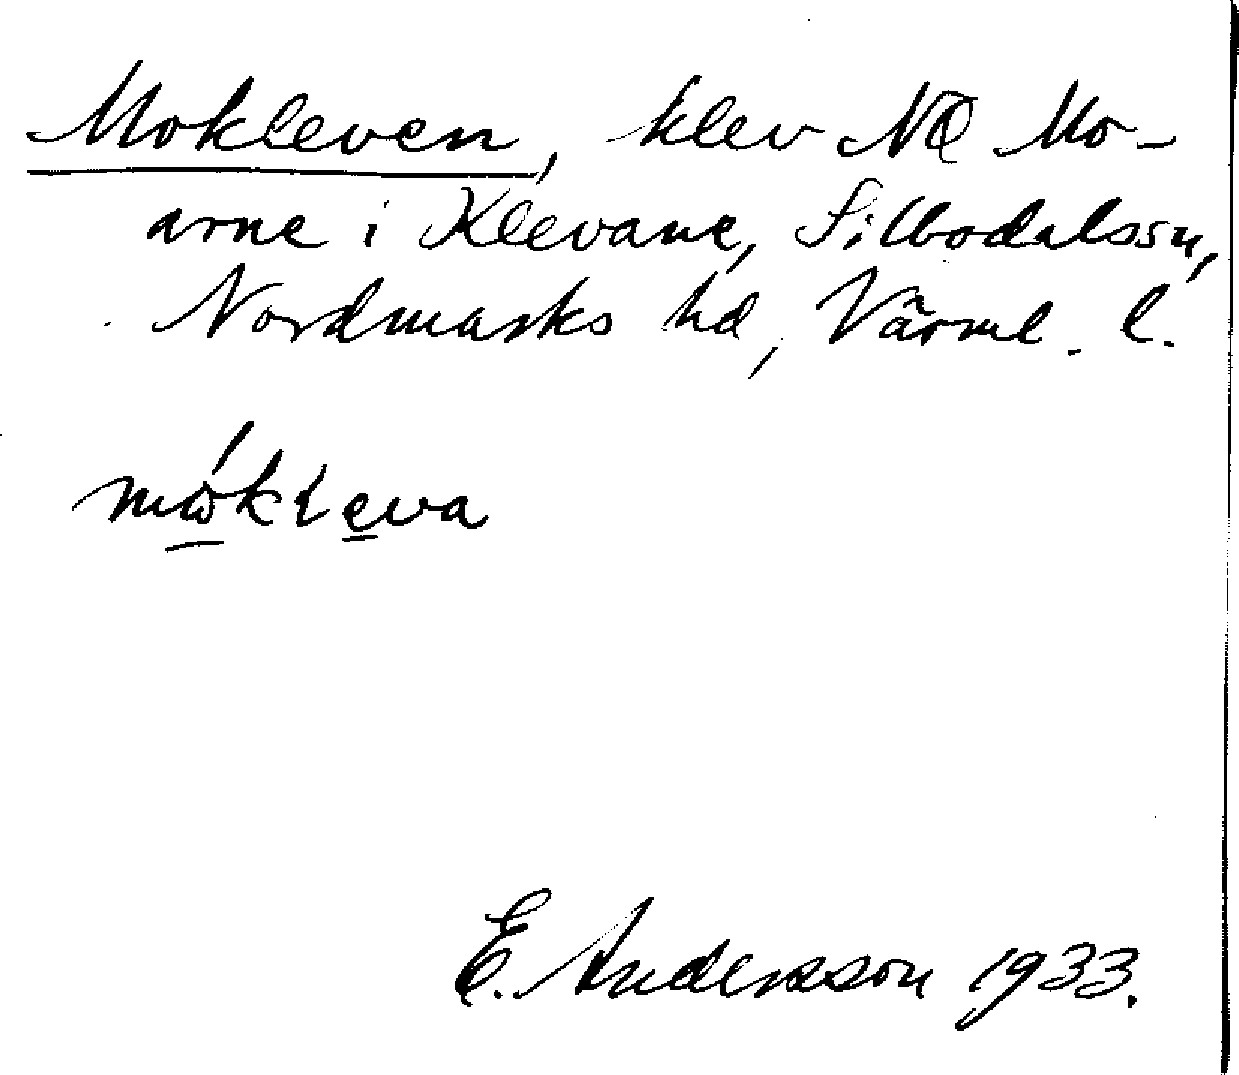 Mokleven, klev NÖ Mo-
arne i Klevane, Silbodalssn,
Nordmarks hd, Värml. l.
mókleva
E. Andersson 1933.